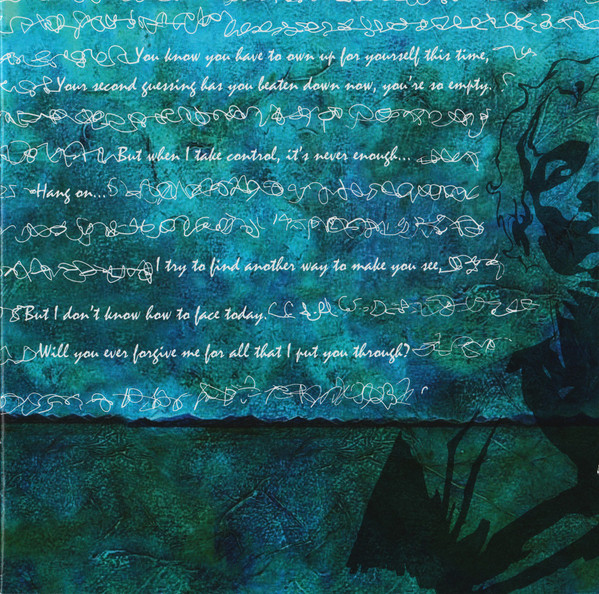 You know you have to own up for yourself this time,
Your second guessing has you beaten down now, you're so empty.
But when I take control, it's never enough...
Hang on...
I try to find another way to make you see,
But I don't know how to face today.
Will you ever forgive me for all that I put you through?